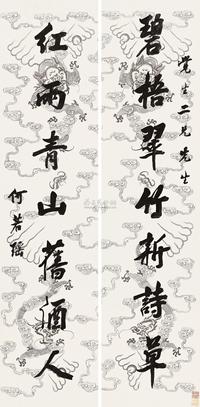 碧梧翠竹新詩草
覺生二兄先生
红雨青山舊酒人
何若瑶